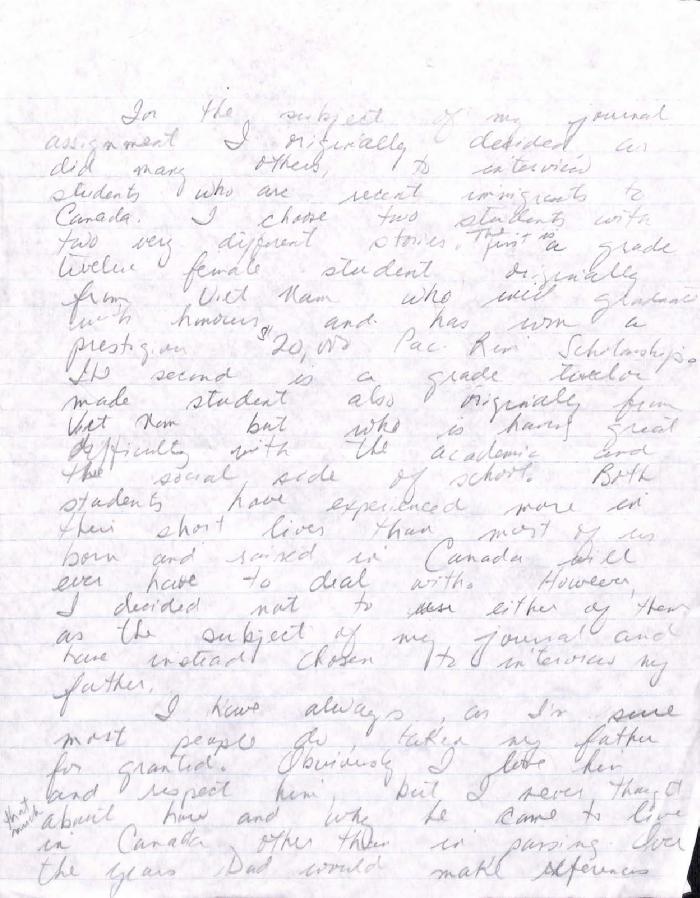 For the subject of my journal
assignment I originally decided as
did many others, to interview
students who are recent immigrants to
Canada. I choose two students with
two very different stories. The first is a grade
twelve female student originally
from Viet Nam who will graduate
with honours and has won a
prestigious $20,000 Pac. Rim Scholarship.
The second is a grade twelve
made student also originally from
Viet Nam but who is having great
difficulty with the academic and
the social side of school. Both
students have experienced more in
their short lives than most of us
born and raised in Canada will
ever have to deal with. However,
I decided not to use either of them
as the subject of my journal and
have instead chosen to interview my
father.
I have always, as I'm sure
most people do, taken my father
for granted. Obviously I love him
and respect him, but I never thought
that much
about how and why he came to live
in Canada other than in passing. Over
the years Dad would make references